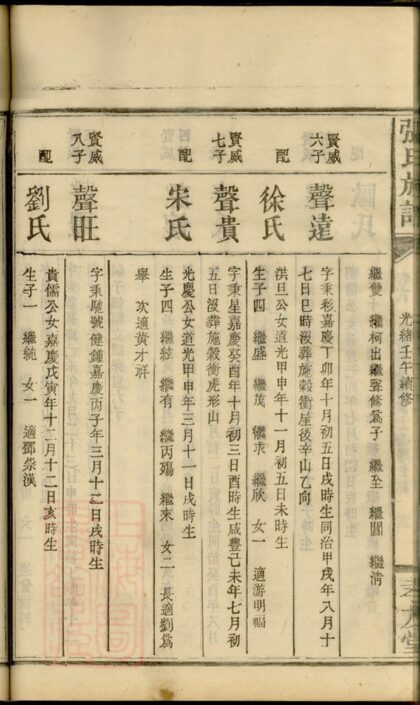 張氏族譜
光緒壬午續修
繼雙 繼柯出繼聲修為子 繼至 繼闓 繼清
賢威六子
聲遠
字秉彩嘉慶丁卯年十月初五日戌時生同治甲戌年八月十
七日巳時沒葬施穀衝屋後辛山乙向
配
徐氏
洪旦公女道光甲申年十一月初五日未時生
生子四 繼盛 繼茂 繼求 繼欣 女一 適游明福
賢威七子
聲貴
字秉星嘉慶癸酉年十月初三日酉時生咸豐己未年七月初
五日沒葬施穀衝虎形山
配
宋氏
光慶公女道光甲申年三月十一日戌時生
生子四 繼紘 繼有 繼丙殤 繼來 女二 長適劉為
舉 次適黃才祥
賢威八子
聲旺
字秉號健鍾嘉慶丙子年三月十二日戌時生
配
劉氏
貴儒公女嘉慶戊寅年十二月十二日亥時生
生子一 繼統 女一 適鄧崇漢